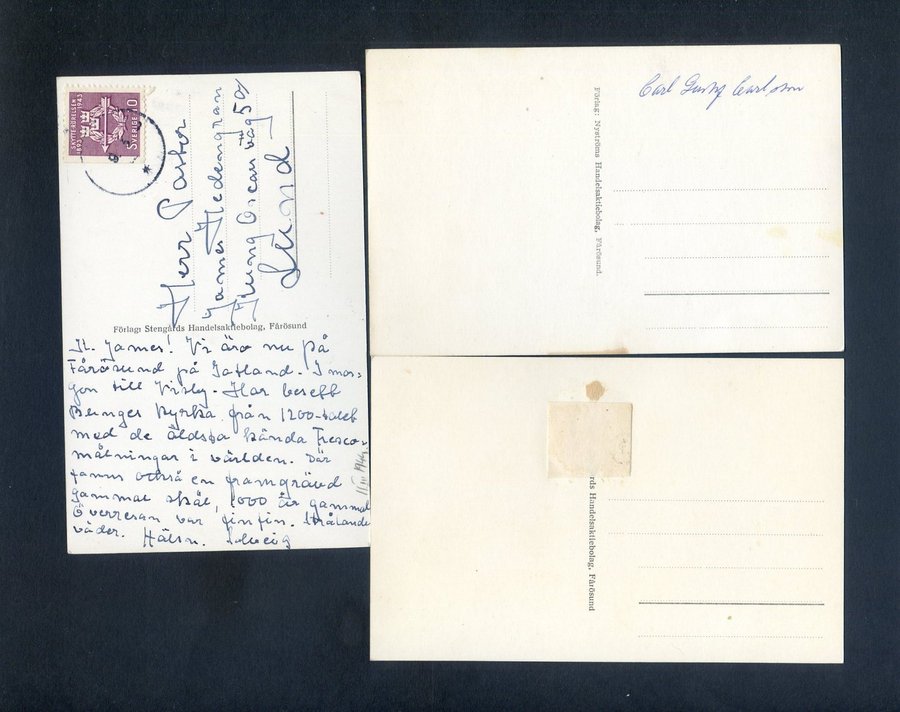 SKYTTERÖRELSEN
1893 1943
SVERIGE 10
Herr Pastor
James Hedengran
Kung Oscars väg 5a
Lund
Förlag: Stengårds Handelsaktiebolag, Fårösund
James! Vi äro nu på
Fårösund på Gotland. I mor-
gon till Visby. Har besett
Bunges kyrka från 1200-talet
med de äldsta kända fresco-
målningar i världen. Där
fanns också en framgrävd
gammal skål, 1000 år gammal
Överresan var fin fin. Strålande
väder. Hälsn. Solveig
Carl Gustaf Carlsson
Förlag: Nyströms Handelsaktiebolag, Fårösund.
rds Handelsaktiebolag, Fårösund